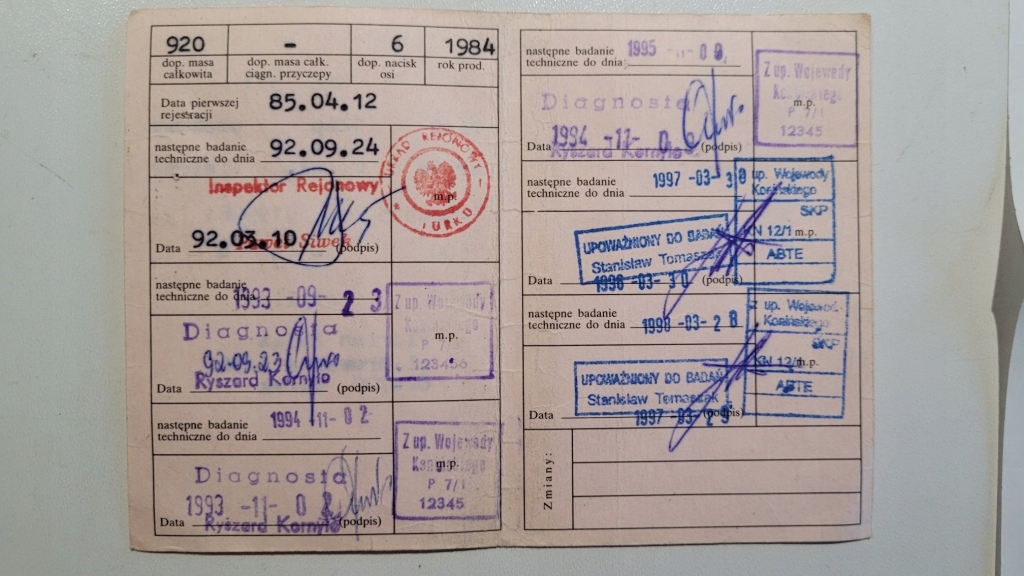 920 - 6 1984
dop. masa całkowita dop. masa całk. ciągn. przyczepy dop. nacisk osi rok prod.
Data pierwszej rejestracji 85.04.12
następne badanie techniczne do dnia 92.09.24
Inspektor Rejonowy
URZĄD REJONOWY
m.p.
TURKU
Data 92.03.10 (podpis)
następne badanie techniczne do dnia 1993-09-23
Z up. Wojewody
Konińskiego
m.p.
P 7/I
123456
Diagnosta
92.09.23
Data Ryszard Kornyło (podpis)
następne badanie techniczne do dnia 1994-11-02
Z up. Wojewody
Konińskiego
m.p.
P 7/I
12345
Diagnosta
1993-11-02
Data Ryszard Kornyło (podpis)
następne badanie techniczne do dnia 1995-11-08
Z up. Wojewody
Konińskiego
m.p.
P 7/I
12345
Diagnosta
Data 1994-11-0
Ryszard Kornyło (podpis)
następne badanie techniczne do dnia 1997-03-30
up. Wojewody
Konińskiego
SKP
KN 12/1 m.p.
ABTE
UPOWAŻNIONY DO BADAŃ
Stanisław Tomaszak
Data 1996-03-30 (podpis)
następne badanie techniczne do dnia 1998-03-28
Z up. Wojewod.
Konińskiego
SKP
KN 12/1 m.p.
ABTE
UPOWAŻNIONY DO BADAŃ
Stanisław Tomaszak
Data 1997-03-29 (podpis)
Zmiany: